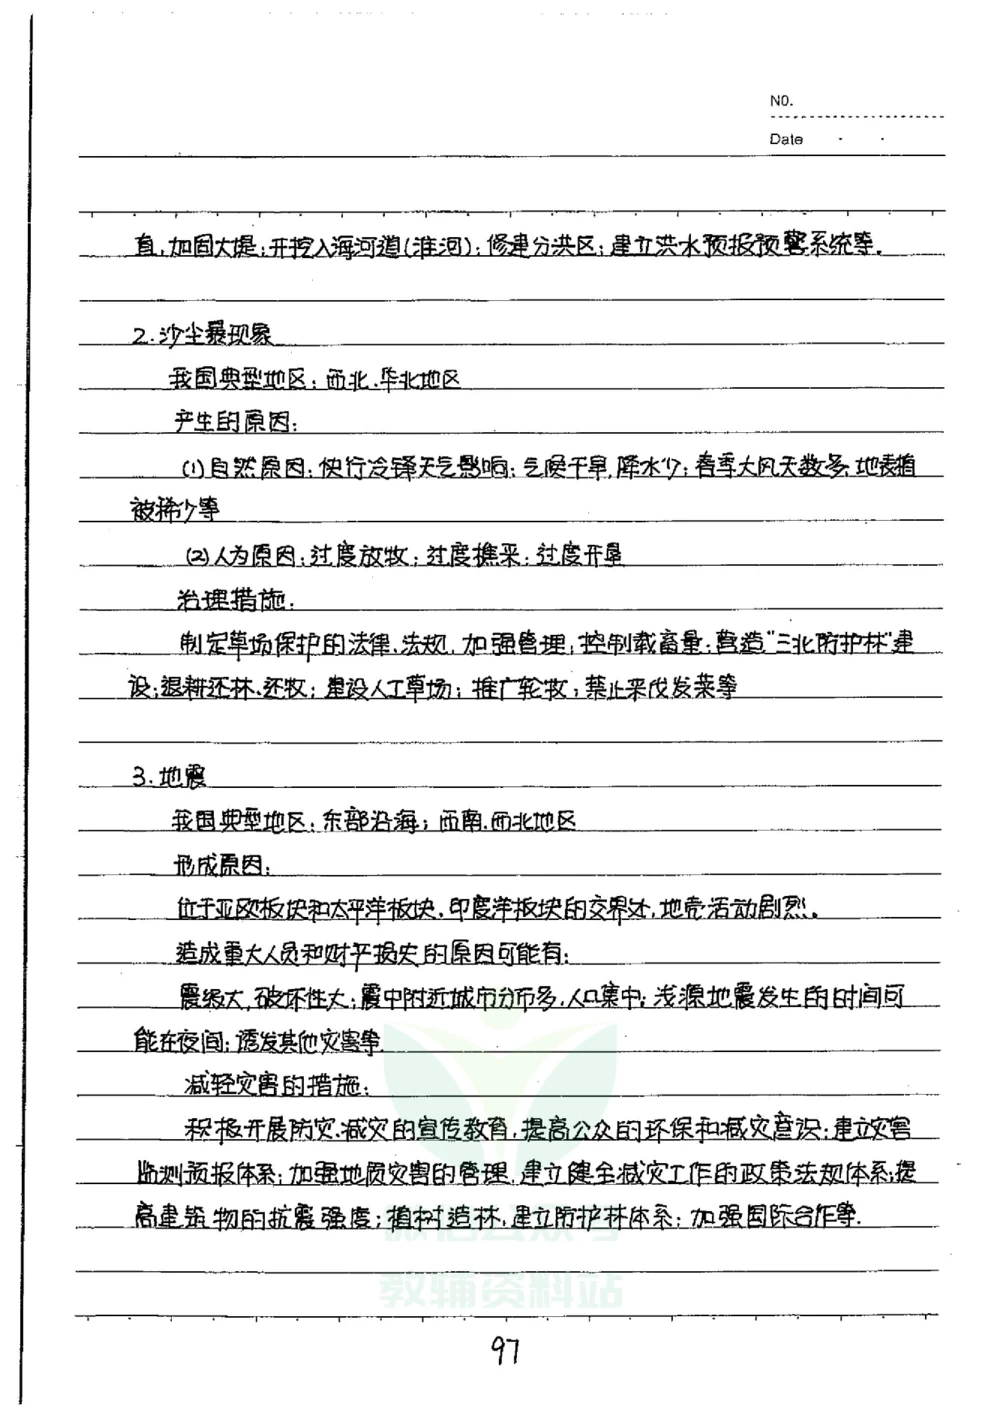 NO.
Date
直,加固大堤;开挖入海河道(淮河);修建分洪区;建立洪水预报预警系统等.
2.沙尘暴现象
我国典型地区:西北、华北地区
产生的原因:
(1)自然原因:快行冷锋天气影响;气候干旱,降水少;春季大风天数多,地表植
被稀少等
(2)人为原因:过度放牧;过度樵采;过度开垦
治理措施:
制定草场保护的法律、法规,加强管理;控制载畜量;营造"三北防护林"建
设;退耕还林、还牧;建设人工草场;推广轮牧;禁止采伐发菜等
3.地震
我国典型地区:东部沿海;西南、西北地区
形成原因:
位于亚欧板块和太平洋板块、印度洋板块的交界处,地壳活动剧烈。
造成重大人员和财产损失的原因可能有:
震级大,破坏性大;震中附近城市分布多,人口集中;浅源地震发生的时间可
能在夜间;诱发其他灾害等.
减轻灾害的措施:
积极开展防灾、减灾的宣传教育,提高公众的环保和减灾意识;建立灾害
监测预报体系;加强地质灾害的管理,建立健全减灾工作的政策法规体系;提
高建筑物的抗震强度;植树造林,建立防护林体系;加强国际合作等.
微信公众号
教辅资料站
97